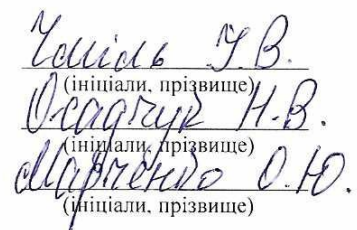 Чміль У.В.
(ініціали, прізвище)
Осадчук Н.В.
(ініціали, прізвище)
Марченко О.Ю.
(ініціали, прізвище)